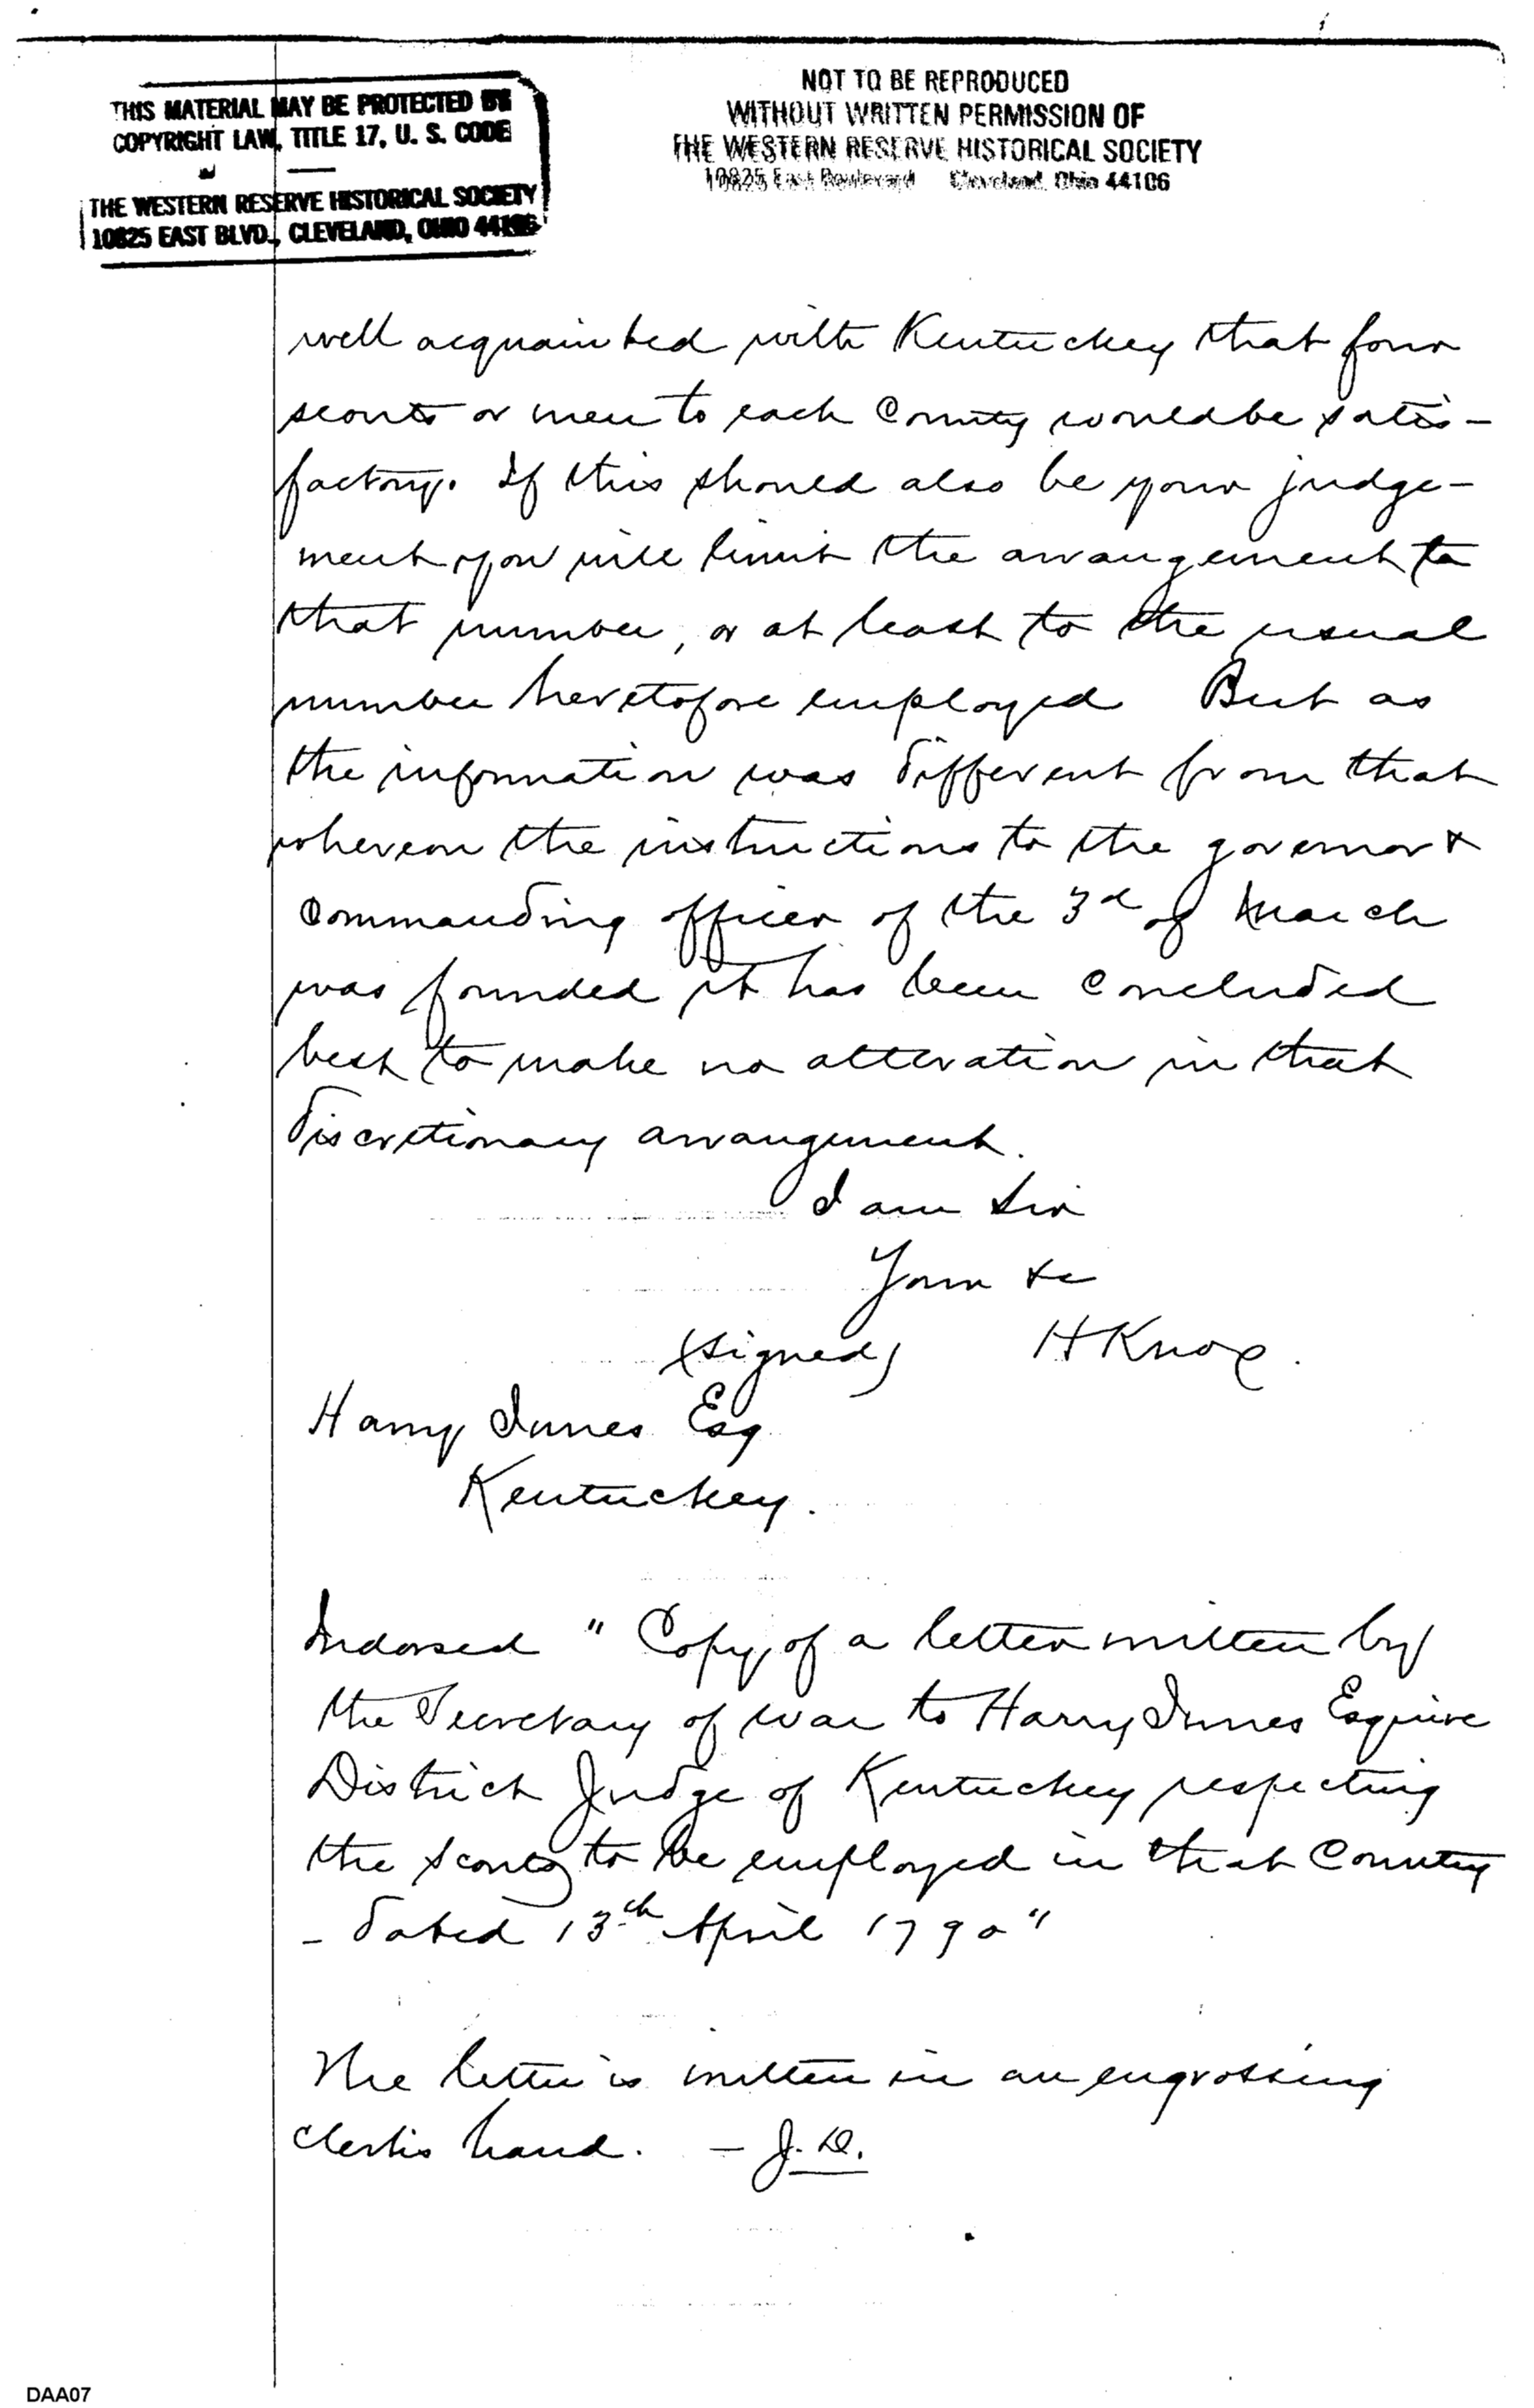 THIS MATERIAL MAY BE PROTECTED BY
COPYRIGHT LAW, TITLE 17, U. S. CODE
THE WESTERN RESERVE HISTORICAL SOCIETY
10825 EAST BLVD., CLEVELAND, OHIO 44106
NOT TO BE REPRODUCED
WITHOUT WRITTEN PERMISSION OF
THE WESTERN RESERVE HISTORICAL SOCIETY
10825 East Boulevard Cleveland, Ohio 44106
well acquainted with Kentuckey that four
scouts or men to each County would be satis-
factory. If this should also be your judge-
ment you will limit the arrangement to
that number, or at least to the usual
number heretofore employed But as
the information was different from that
whereon the instructions to the governor &
commanding officer of the 3d of March
was founded it has been concluded
best to make no alteration in that
discretionary arrangement.
I am Sir
Your &c
(signed) H Knox.
Harry Innes Esq
Kentuckey.
Indorsed "Copy of a letter written by
the Secretary of war to Harry Innes Esquire
District Judge of Kentuckey respecting
the scouts to be employed in that Country
- dated 13th April 1790"
The letter is written in an engrossing
clerks hand. - J. D.
DAA07